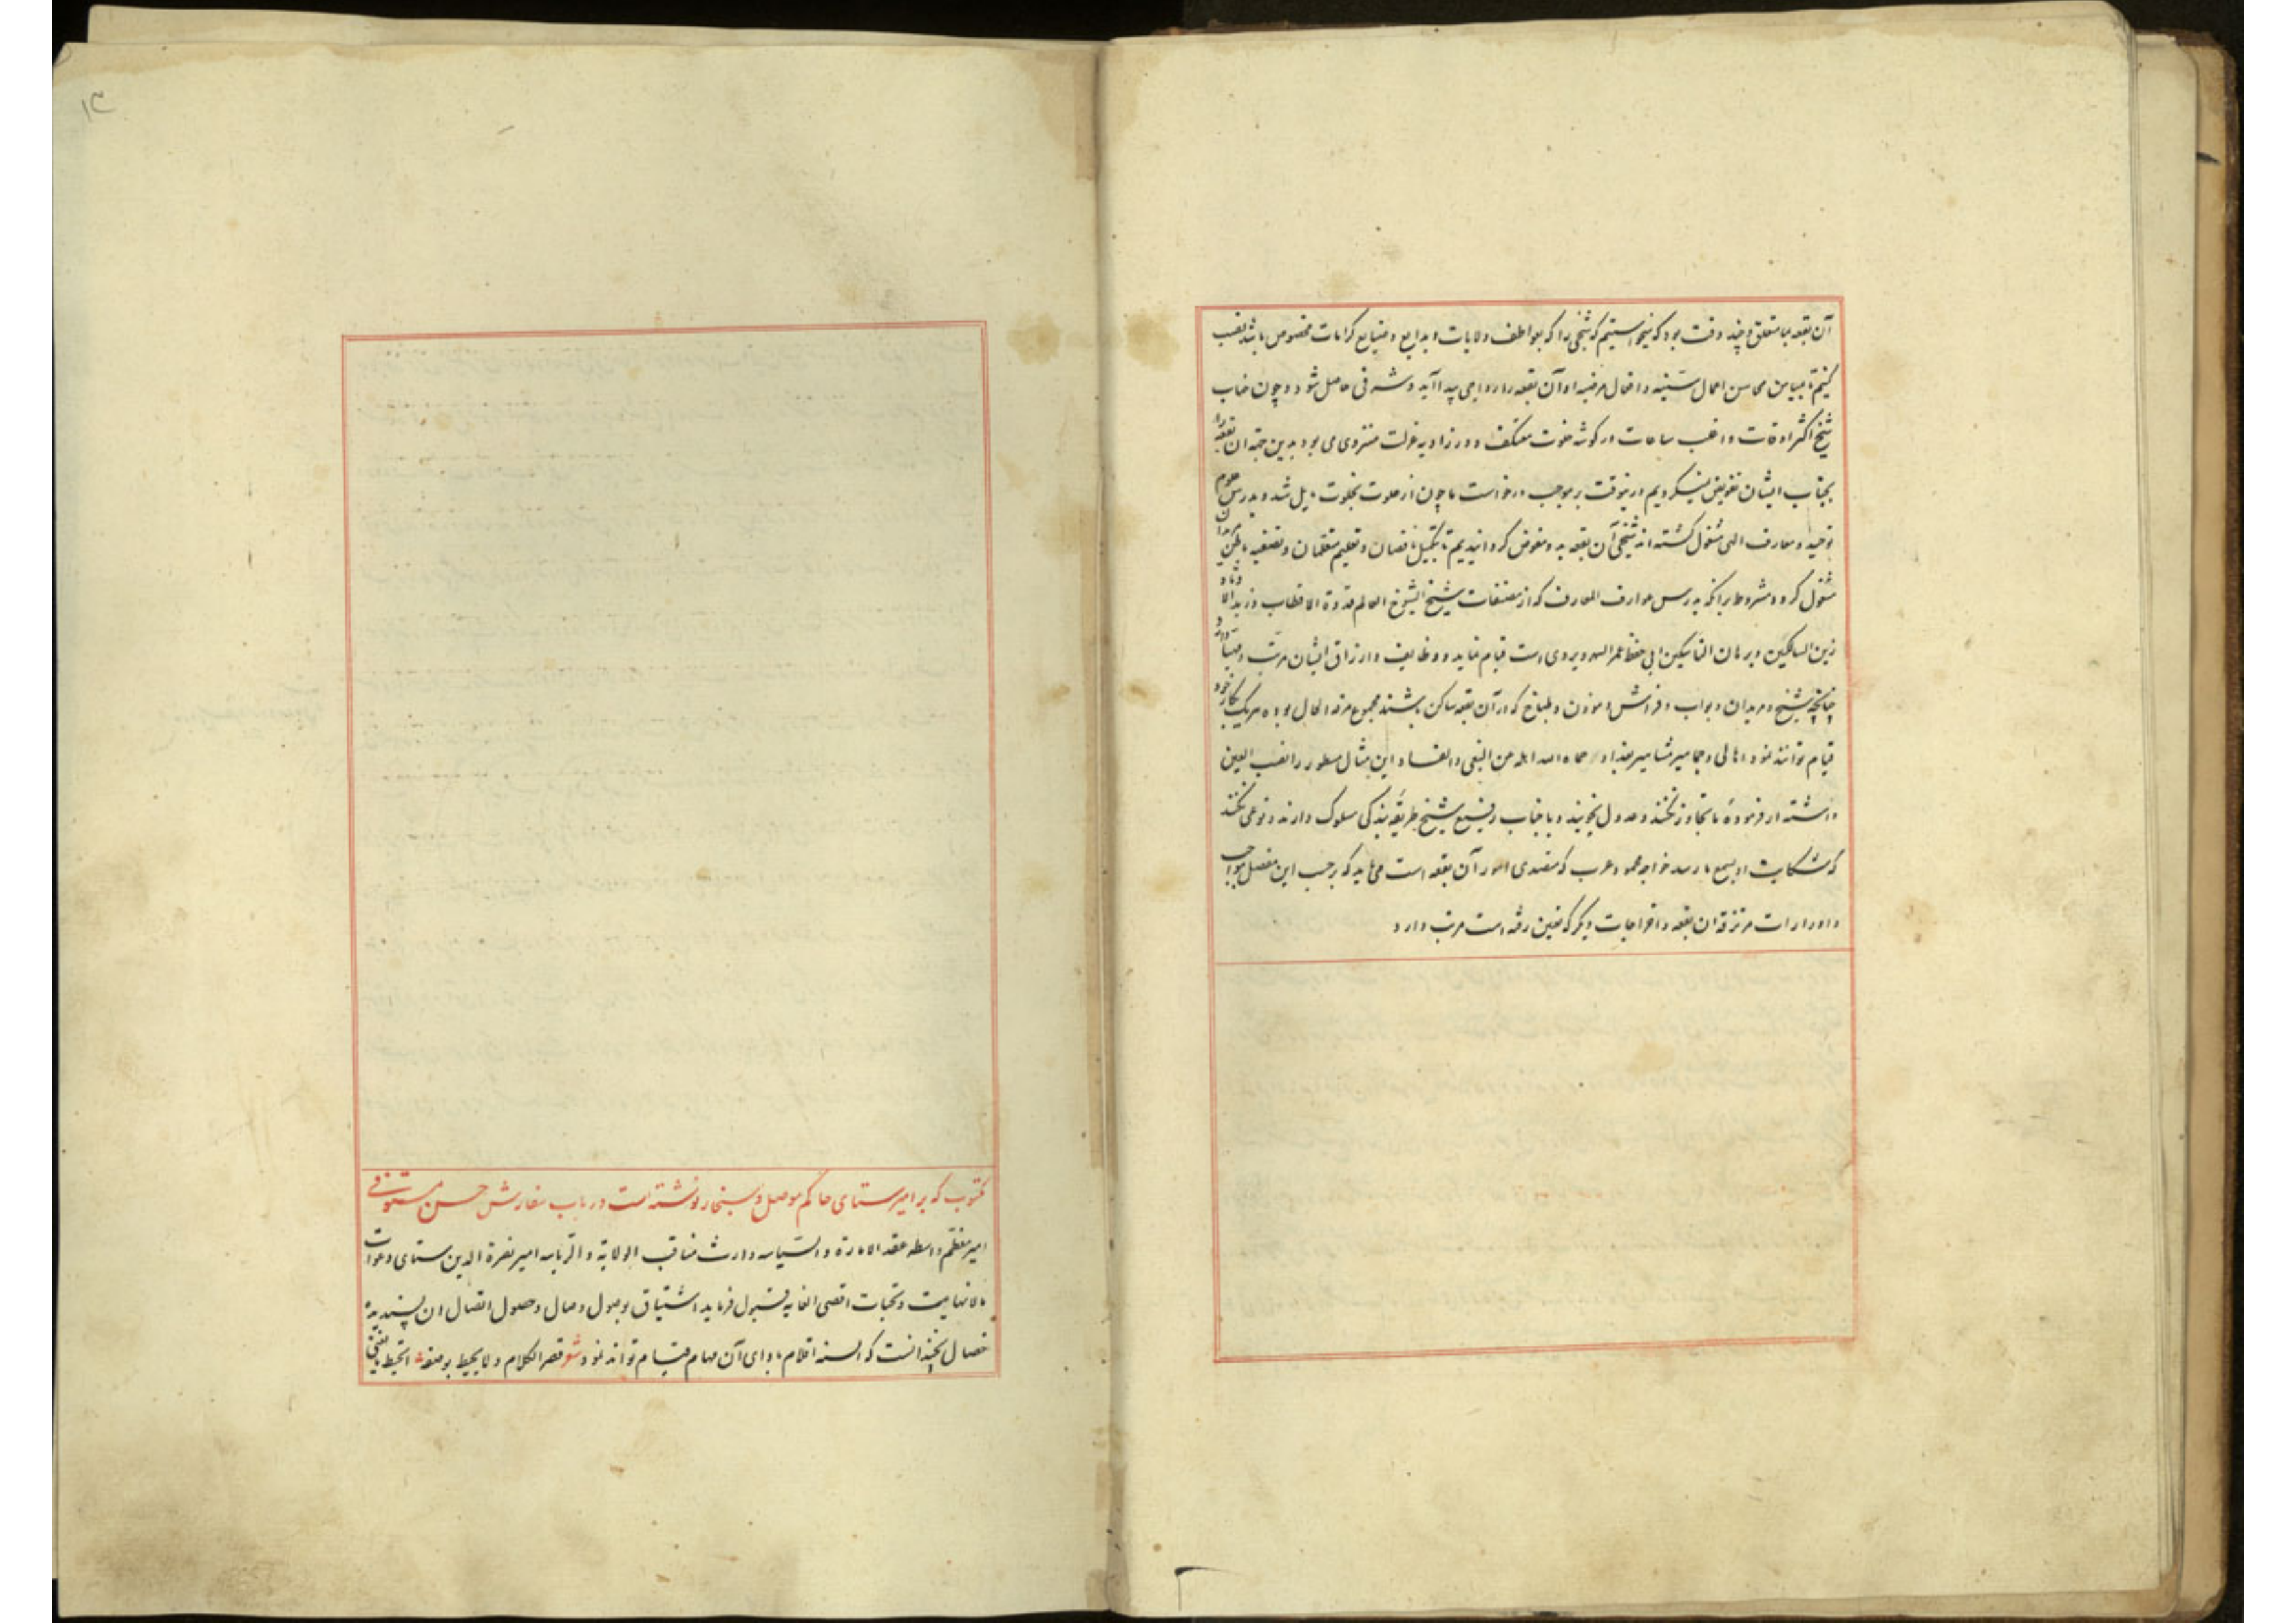 آن بقعه بما متعلق و چند وقت بود که میخواستیم که شیخی را که بعواطف ولایات و بدایع و صنایع کرامات مخصوص باشد نصب
کنیم تا بمیامن محاسن اعمال سنیه و افعال مرضیه او آن بقعه را رواجی پیدا آید و شرفی حاصل شود و چون جناب
شیخ اکثر اوقات و اغلب ساعات در گوشه خلوت معتکف و در زاویه عزلت منزوی می بود بدین جهة ان بقعه را
بجناب ایشان تفویض نمیکردیم درینوقت بر موجب درخواست ما چون از خلوت بجلوت مایل شد و بدرس علوم
توحید و معارف الهی مشغول گشته اند شیخی آن بقعه بدو مفوض گردانیدیم تا بتکمیل ناقصان و تعلیم متعلمان و تصفیه باطن مریدان
مشغول گردد مشروط برانکه بدرس عوارف المعارف که از مصنفات شیخ الشیوخ العالم قدوة الاقطاب و زبدة الاوتاد
زین السالکین و برهان الناسکین ابی حفص عمر السهروردی است قیام نماید و وظایف و ارزاق ایشان مرتب و مهیا دارد
چنانچه شیخ و مریدان و بواب و فراش و موذن و طباخ که در آن بقعه ساکن باشند مجموع مرفه الحال بوده هر یک بکار خود
قیام توانند نمود اهالی و جماهیر مشاهیر بغداد حماه الله اهله عن البغی و الفساد این مثال مسطور را نصب العین
داشته از فرمودهٔ ما تجاوز نکنند و عدول نجویند و با جناب رفیع شیخ طریقه بندگی مسلوک دارند و نوعی نکنند
که شکایت او بسمع ما رسد خواجه محمود عرب که متصدی امور آن بقعه است می باید که بر حسب این مفصل مواجب
و ادرارات مرتزقه ان بقعه و اخراجات دیگر که تعیین رفته است مرتب دارد
۱۳
مکتوب که بر امیر ستای حاکم موصل و سنجار نوشته است در باب سفارش حسن مستوفی
امیر معظم واسطه عقد الاماره و السیاسه وارث مناقب الولایة و الریاسه امیر نصرة الدین ستای دعوات
بلا نهایت و تحیات اقصی الغایه قبول فرماید اشتیاق بوصول وصال و حصول اتصال ان پسندیده
خصال نچندانست که السنه اقلام بادای آن مهام قیام تواند نمود شعر قصر الکلام و لا یحیط بوصفه ایحیط